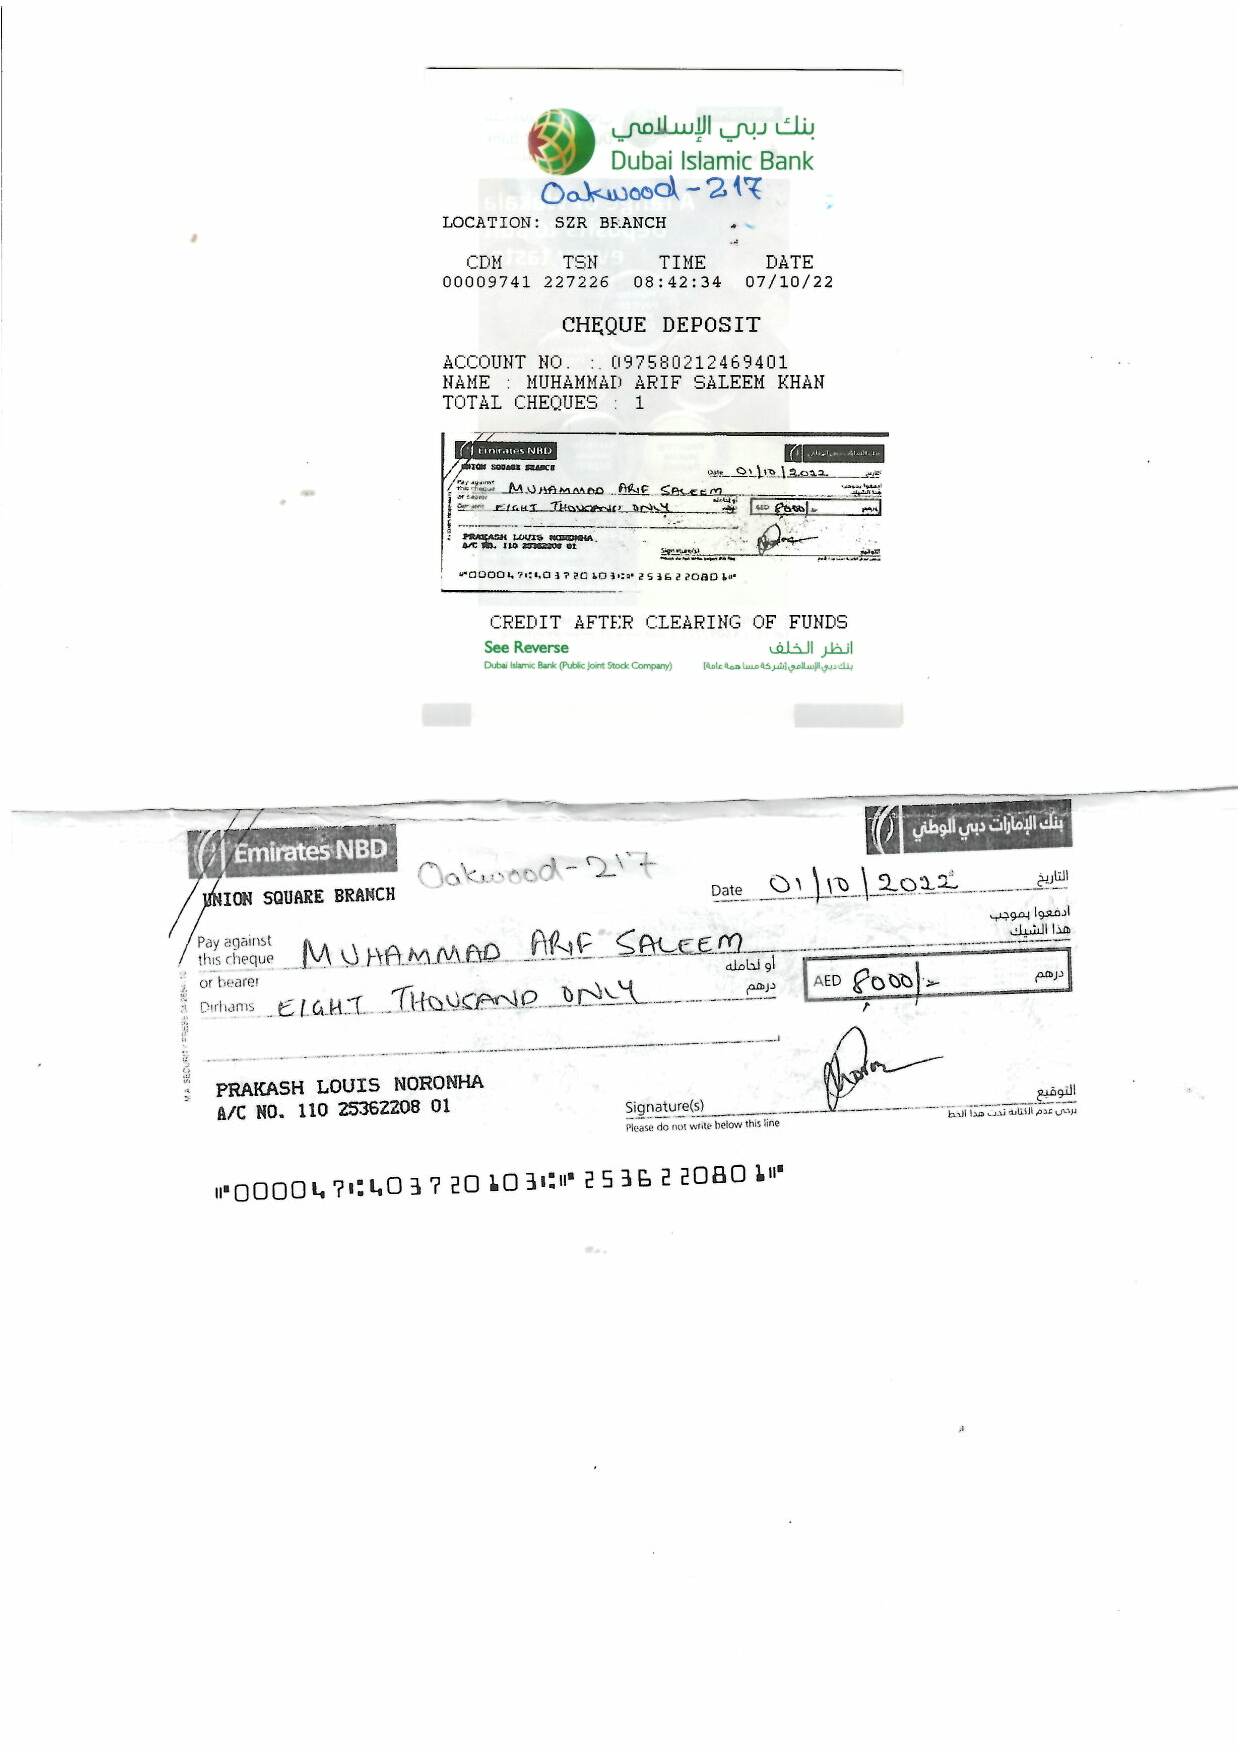 بنك دبي الإسلامي
Dubai Islamic Bank
Oakwood - 217
LOCATION: SZR BRANCH
CDM TSN TIME DATE
00009741 227226 08:42:34 07/10/22
CHEQUE DEPOSIT
ACCOUNT NO. : 097580212469401
NAME : MUHAMMAD ARIF SALEEM KHAN
TOTAL CHEQUES : 1
Emirates NBD
UNION SQUARE BRANCH
Date 01/10/2022
Pay against
this cheque MUHAMMAD ARIF SALEEM
or bearer
EIGHT THOUSAND ONLY AED 8000/-
PRAKASH LOUIS NORONHA
A/C NO. 110 25362208 01
Signature(s)
⑈000047⑆403720103⑆⑈2536220801⑈
CREDIT AFTER CLEARING OF FUNDS
See Reverse انظر الخلف
Dubai Islamic Bank (Public Joint Stock Company) بنك دبي الإسلامي (شركة مساهمة عامة)
Emirates NBD بنك الإمارات دبي الوطني
Oakwood - 217
UNION SQUARE BRANCH
Date 01/10/2022 التاريخ
Pay against ادفعوا بموجب
this cheque MUHAMMAD ARIF SALEEM هذا الشيك
or bearer أو لحامله
Dirhams EIGHT THOUSAND ONLY درهم AED 8000/- درهم
PRAKASH LOUIS NORONHA
A/C NO. 110 25362208 01
Signature(s) التوقيع
Please do not write below this line يرجى عدم الكتابة تحت هذا الخط
⑈000047⑆403720103⑆⑈2536220801⑈